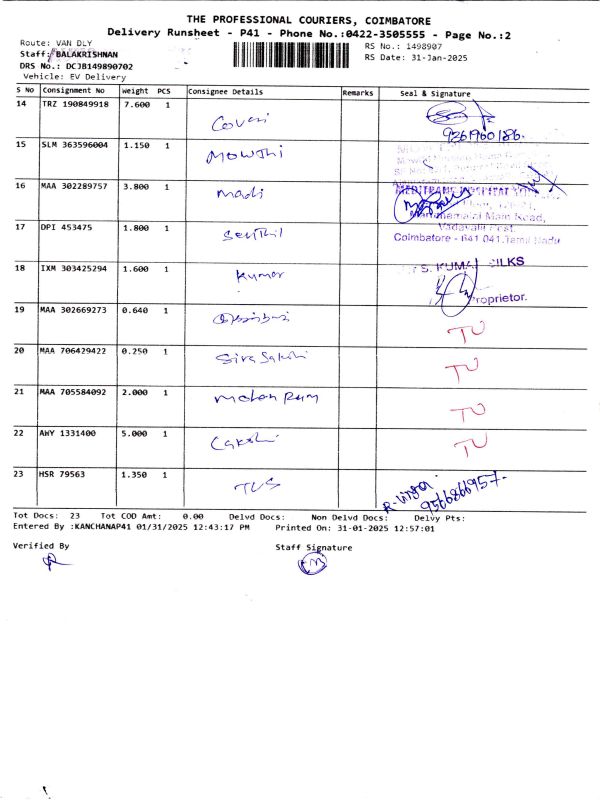 THE PROFESSIONAL COURIERS, COIMBATORE
Delivery Runsheet - P41 - Phone No.:0422-3505555 - Page No.:2
Route: VAN DLY
RS No.: 1498907
Staff: BALAKRISHNAN
RS Date: 31-Jan-2025
DRS No.: DCJB149890702
Vehicle: EV Delivery
S No Consignment No Weight PCS Consignee Details Remarks Seal & Signature
14 TRZ 190849918 7.600 1
9361960186.
15 SLM 363596004 1.150 1 Mowthi
16 MAA 302289757 3.800 1 madi
Main Road,
17 DPI 453475 1.800 1 Senthil
Vadavalli Post,
Coimbatore - 641 041.Tamil Nadu
18 IXM 303425294 1.600 1 Kumar
S. KUMAR SILKS
Proprietor.
19 MAA 302669273 0.640 1 TU
20 MAA 706429422 0.250 1 Siva Sakthi TU
21 MAA 705584092 2.000 1 Mohan Ram TU
22 AWY 1331400 5.000 1 TU
23 HSR 79563 1.350 1 TVS
9566866957.
Tot Docs: 23 Tot COD Amt: 0.00 Delvd Docs: Non Delvd Docs: Delvy Pts:
Entered By :KANCHANAP41 01/31/2025 12:43:17 PM Printed On: 31-01-2025 12:57:01
Verified By Staff Signature